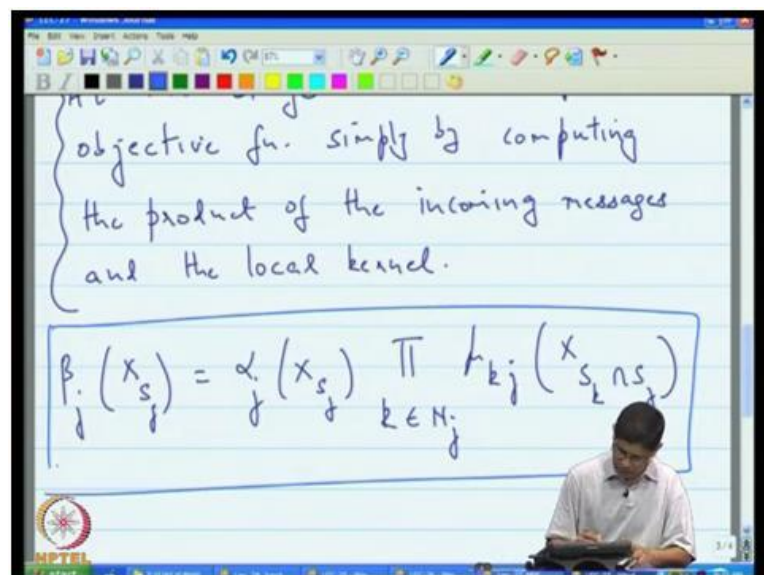 LEC-27 - Windows Journal
File Edit View Insert Actions Tools Help
B I
objective fn. simply by computing
the product of the incoming messages
and the local kernel.
β_j (x_{S_j}) = α_j (x_{S_j}) Π_{k ∈ N_j} μ_{kj} (x_{S_k ∩ S_j})
NPTEL